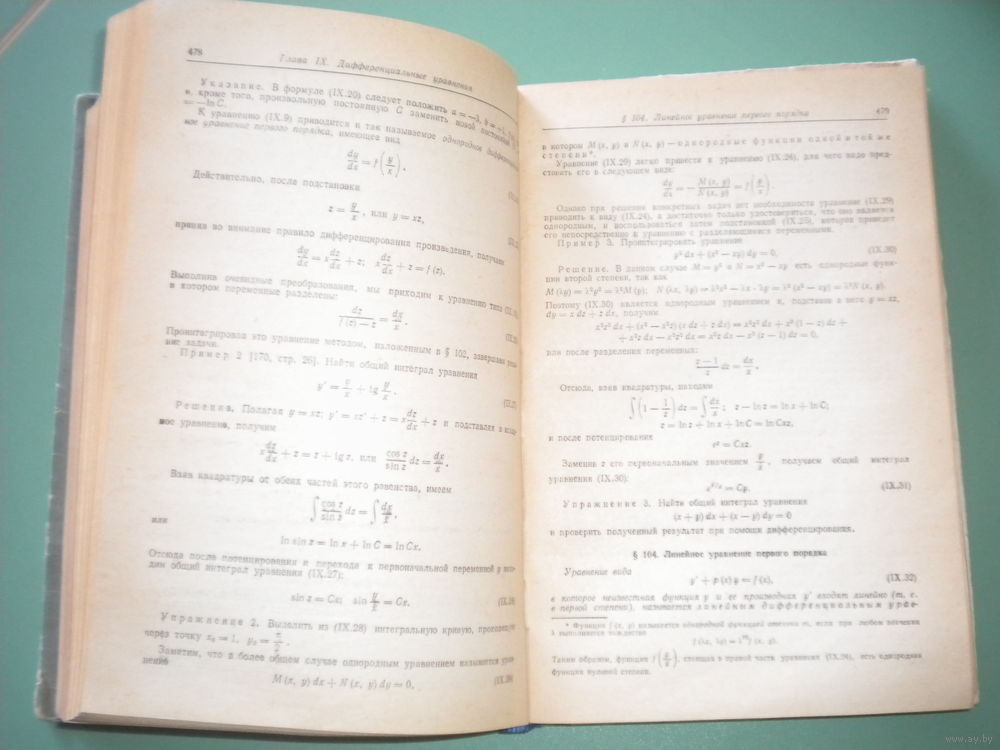 478
Глава IX. Дифференциальные уравнения
Указание. В формуле (IX.20) следует положить a = −3, b = −1,
и, кроме того, произвольную постоянную C заменить новой постоянной
= −ln C.
К уравнению (IX.9) приводится и так называемое однородное дифференциаль-
ное уравнение первого порядка, имеющее вид
dy/dx = f(y/x).
Действительно, после подстановки
z = y/x, или y = xz,
приняв во внимание правило дифференцирования произведения, получаем
dy/dx = x dz/dx + z; x dz/dx + z = f(z).
Выполнив очевидные преобразования, мы приходим к уравнению типа
в котором переменные разделены:
dz/(f(z) − z) = dx/x.
Проинтегрировав это уравнение методом, изложенным в § 102, завершаем
ние задачи.
Пример 2 [170, стр. 26]. Найти общий интеграл уравнения
y′ = y/x + tg y/x.
(IX.27)
Решение. Полагая y = xz; y′ = xz′ + z = x dz/dx + z и подставляя в
ное уравнение, получим
x dz/dx + z = z + tg z, или cos z/sin z dz = dx/x.
Взяв квадратуры от обеих частей этого равенства, имеем
∫ cos z/sin z dz = ∫ dx/x,
или
ln sin z = ln x + ln C = ln Cx.
Отсюда после потенцирования и перехода к первоначальной переменной y
дим общий интеграл уравнения (IX.27):
sin z = Cx; sin y/x = Cx.
(IX.28)
Упражнение 2. Выделить из (IX.28) интегральную кривую, проходящую
через точку x₀ = 1, y₀ = π/2.
Заметим, что в более общем случае однородным уравнением называется урав-
нение
M(x, y) dx + N(x, y) dy = 0,
(IX.29)
§ 104. Линейное уравнение первого порядка
479
в котором M(x, y) и N(x, y) — однородные функции одной и той же
степени*.
Уравнение (IX.29) легко привести к уравнению (IX.24), для чего надо пред-
ставить его в следующем виде:
dy/dx = − M(x, y)/N(x, y) = f(y/x).
Однако при решении конкретных задач нет необходимости уравнение (IX.29)
приводить к виду (IX.24), а достаточно только удостовериться, что оно является
однородным, и воспользоваться затем подстановкой (IX.25), которая приведет
его непосредственно к уравнению с разделяющимися переменными.
Пример 3. Проинтегрировать уравнение
y² dx + (x² − xy) dy = 0.
(IX.30)
Решение. В данном случае M = y² и N = x² − xy есть однородные функ-
ции второй степени, так как
M(λy) = λ²y² = λ²M(y); N(λx, λy) = λ²x² − λx · λy = λ²(x² − xy) = λ²N(x, y).
Поэтому (IX.30) является однородным уравнением и, подставив в него y = xz,
dy = x dz + z dx, получим
x²z² dx + (x² − x²z)(x dz + z dx) = x²z² dx + x³(1 − z) dz +
+ x²z dx − x²z² dx = x²z dx − x³(z − 1) dz = 0,
или после разделения переменных:
(z − 1)/z dz = dx/x.
Отсюда, взяв квадратуры, находим
∫(1 − 1/z) dz = ∫ dx/x; z − ln z = ln x + ln C;
z = ln z + ln x + ln C = ln Cxz,
и после потенцирования
eᶻ = Cxz.
Заменив z его первоначальным значением y/x, получаем общий интеграл
уравнения (IX.30):
e^{y/x} = Cy.
(IX.31)
Упражнение 3. Найти общий интеграл уравнения
(x + y) dx + (x − y) dy = 0
и проверить полученный результат при помощи дифференцирования.
§ 104. Линейное уравнение первого порядка
Уравнение вида
y′ + p(x) y = f(x),
(IX.32)
в которое неизвестная функция y и ее производная y′ входят линейно (т. е.
в первой степени), называется линейным дифференциальным урав-
* Функция f(x, y) называется однородной функцией степени m, если при любом значении
λ выполняется тождество
f(λx, λy) = λᵐf(x, y).
Таким образом, функция f(y/x), стоящая в правой части уравнения (IX.24), есть однородная
функция нулевой степени.
www.ay.by